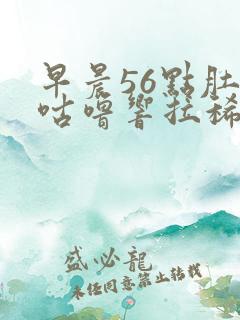 早晨56點肚
咕嚕響拉稀
盛必龍
未經同意禁止轉載